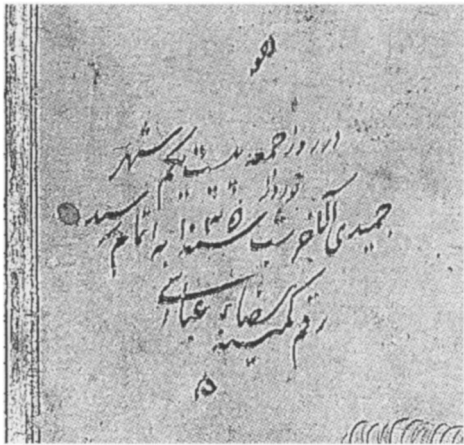 هو
در روز جمعه بیست یکم شهر
جمیدی الآخر شب سنه ۱۰۳۵ به اتمام رسید
رقم کمینه رضاء عباسی